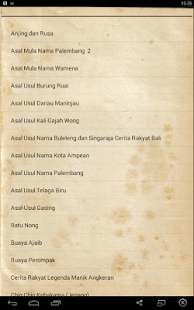 15.25
Anjing dan Rusa
Asal Mula Nama Palembang 2
Asal Mula Nama Wamena
Asal Usul Burung Ruai
Asal Usul Danau Maninjau
Asal Usul Kali Gajah Wong
Asal Usul Nama Buleleng dan Singaraja Cerita Rakyat Bali
Asal Usul Nama Kota Ampean
Asal Usul Nama Palembang
Asal Usul Telaga Biru
Asal-Usul Gasing
Batu Nong
Buaya Ajaib
Buaya Perompak
Cerita Rakyat Legenda Manik Angkeran